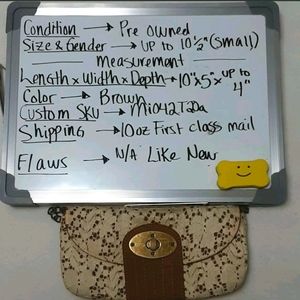 Condition → Pre owned
Size & Gender → Up to 10½" (Small)
Measurement
Length x Width x Depth → 10" x 5" x up to 4"
Color → Brown
Custom SKU →
Shipping → 10oz First class mail
Flaws → N/A Like New